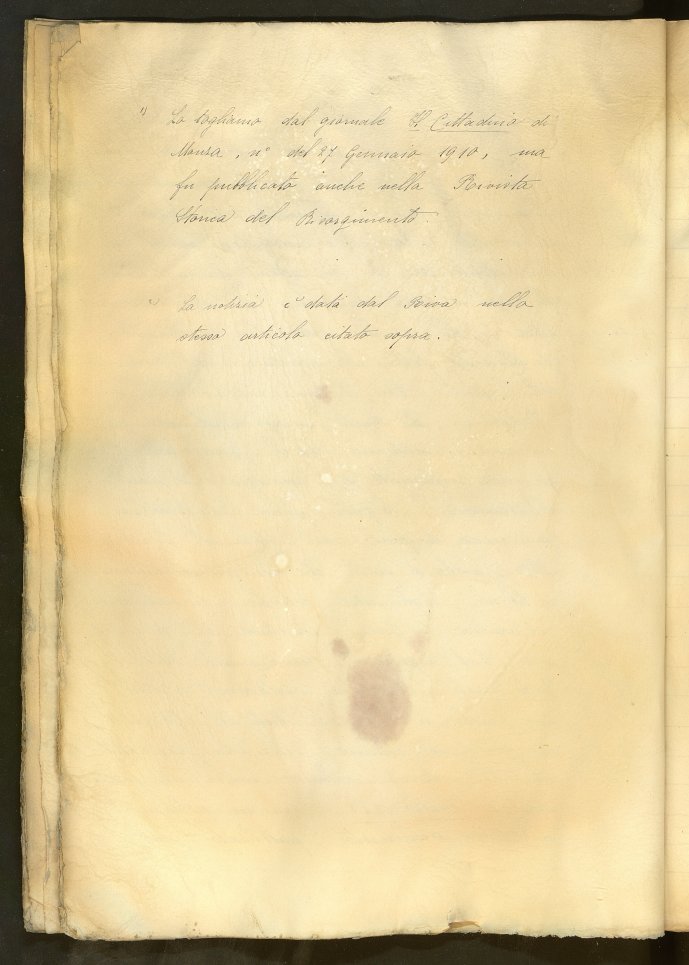 1) Lo togliamo dal giornale Il Cittadino di
Monza, n° del 27 Gennaio 1910, ma
fu pubblicato anche nella Rivista
Storica del Risorgimento.
La notizia è data dal Riva nello
stesso articolo citato sopra.